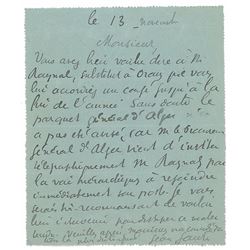 le 13 novembre
Monsieur,
Vous avez bien voulu dire à M.
Raynal, substitut à Oran que vous
lui accordiez un congé jusqu'à la
fin de l'année. Sans doute le
parquet général d'Alger
a pas été avisé, car M. le Procureur
Général d'Alger vient d'inviter
télégraphiquement M. Raynal par
la voie hiérarchique à rejoindre
immédiatement son poste. Je vous
serais très reconnaissant de vouloir
bien
Veuillez agréer, monsieur,